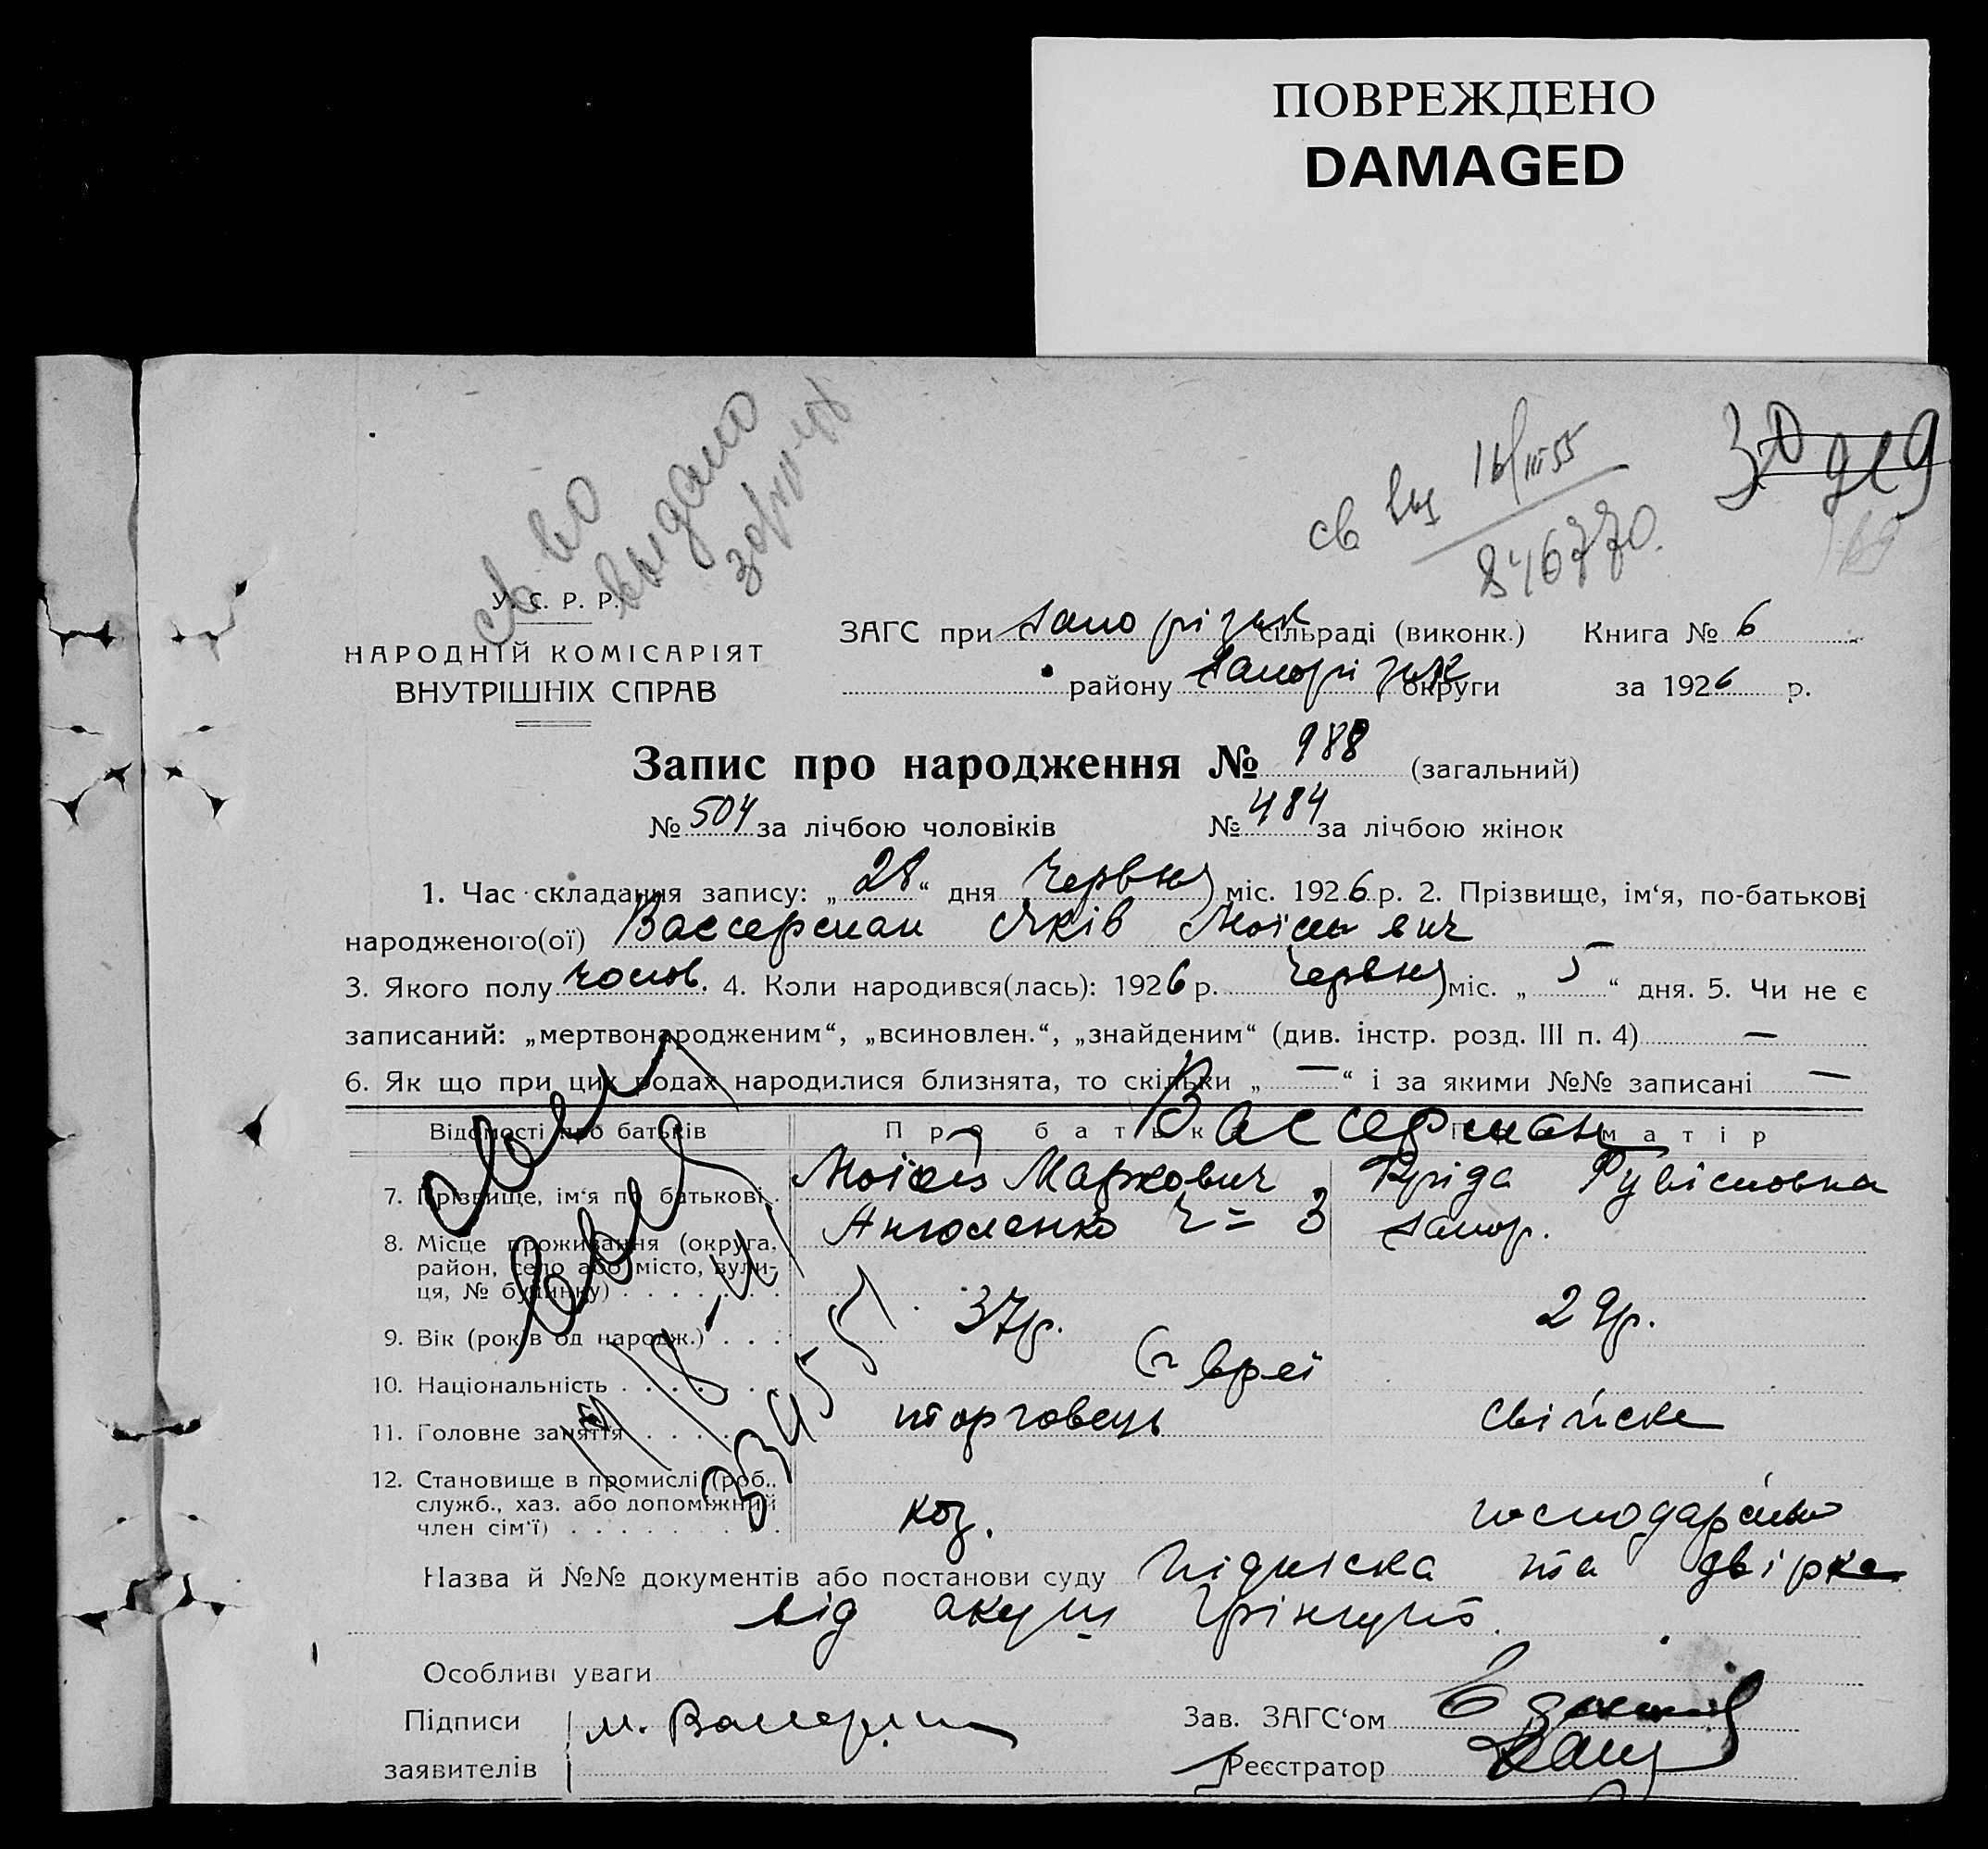 ПОВРЕЖДЕНО
DAMAGED
св во
выдано
св выд 16/III 55
846770.
У. С. Р. Р.
НАРОДНІЙ КОМІСАРІЯТ
ВНУТРІШНІХ СПРАВ
ЗАГС при Запоріжж сільраді (виконк.) Книга № 6
району Запоріжж округи за 1926 р.
Запис про народження № 988 (загальний)
№ 504 за лічбою чоловіків № 484 за лічбою жінок
1. Час складання запису: „28“ дня Червня міс. 1926 р. 2. Прізвище, ім‘я, по-батькові
народженого(ої) Вассерман Яків Моісеевич —
3. Якого полу чолов. 4. Коли народився(лась): 1926 р. Червня міс. „5“ дня. 5. Чи не є
записаний: „мертвонародженим“, „всиновлен.“, „знайденим“ (див. інстр. розд. III п. 4) —
6. Як що при цих родах народилися близнята, то скільки „—“ і за якими №№ записані —
Відомості про батьків Про батька Про матір
Вассерман
7. Прізвище, ім‘я по батькові Моісей Маркович Фріда Рувімовна
8. Місце проживання (округа, район, село або місто, вулиця, № будинку) ч= 3 Запор.
9. Вік (років од народж.) 37р. 29р.
10. Національність Євреї
11. Головне заняття торговець свійске
12. Становище в промислі (роб., служб., хаз. або допоміжний член сім‘ї) хоз. господарство
Назва й №№ документів або постанови суду підписка та двірка
від акуш
Особливі уваги
Підписи м. Вассерман Зав. ЗАГС‘ом
заявителів Реєстратор